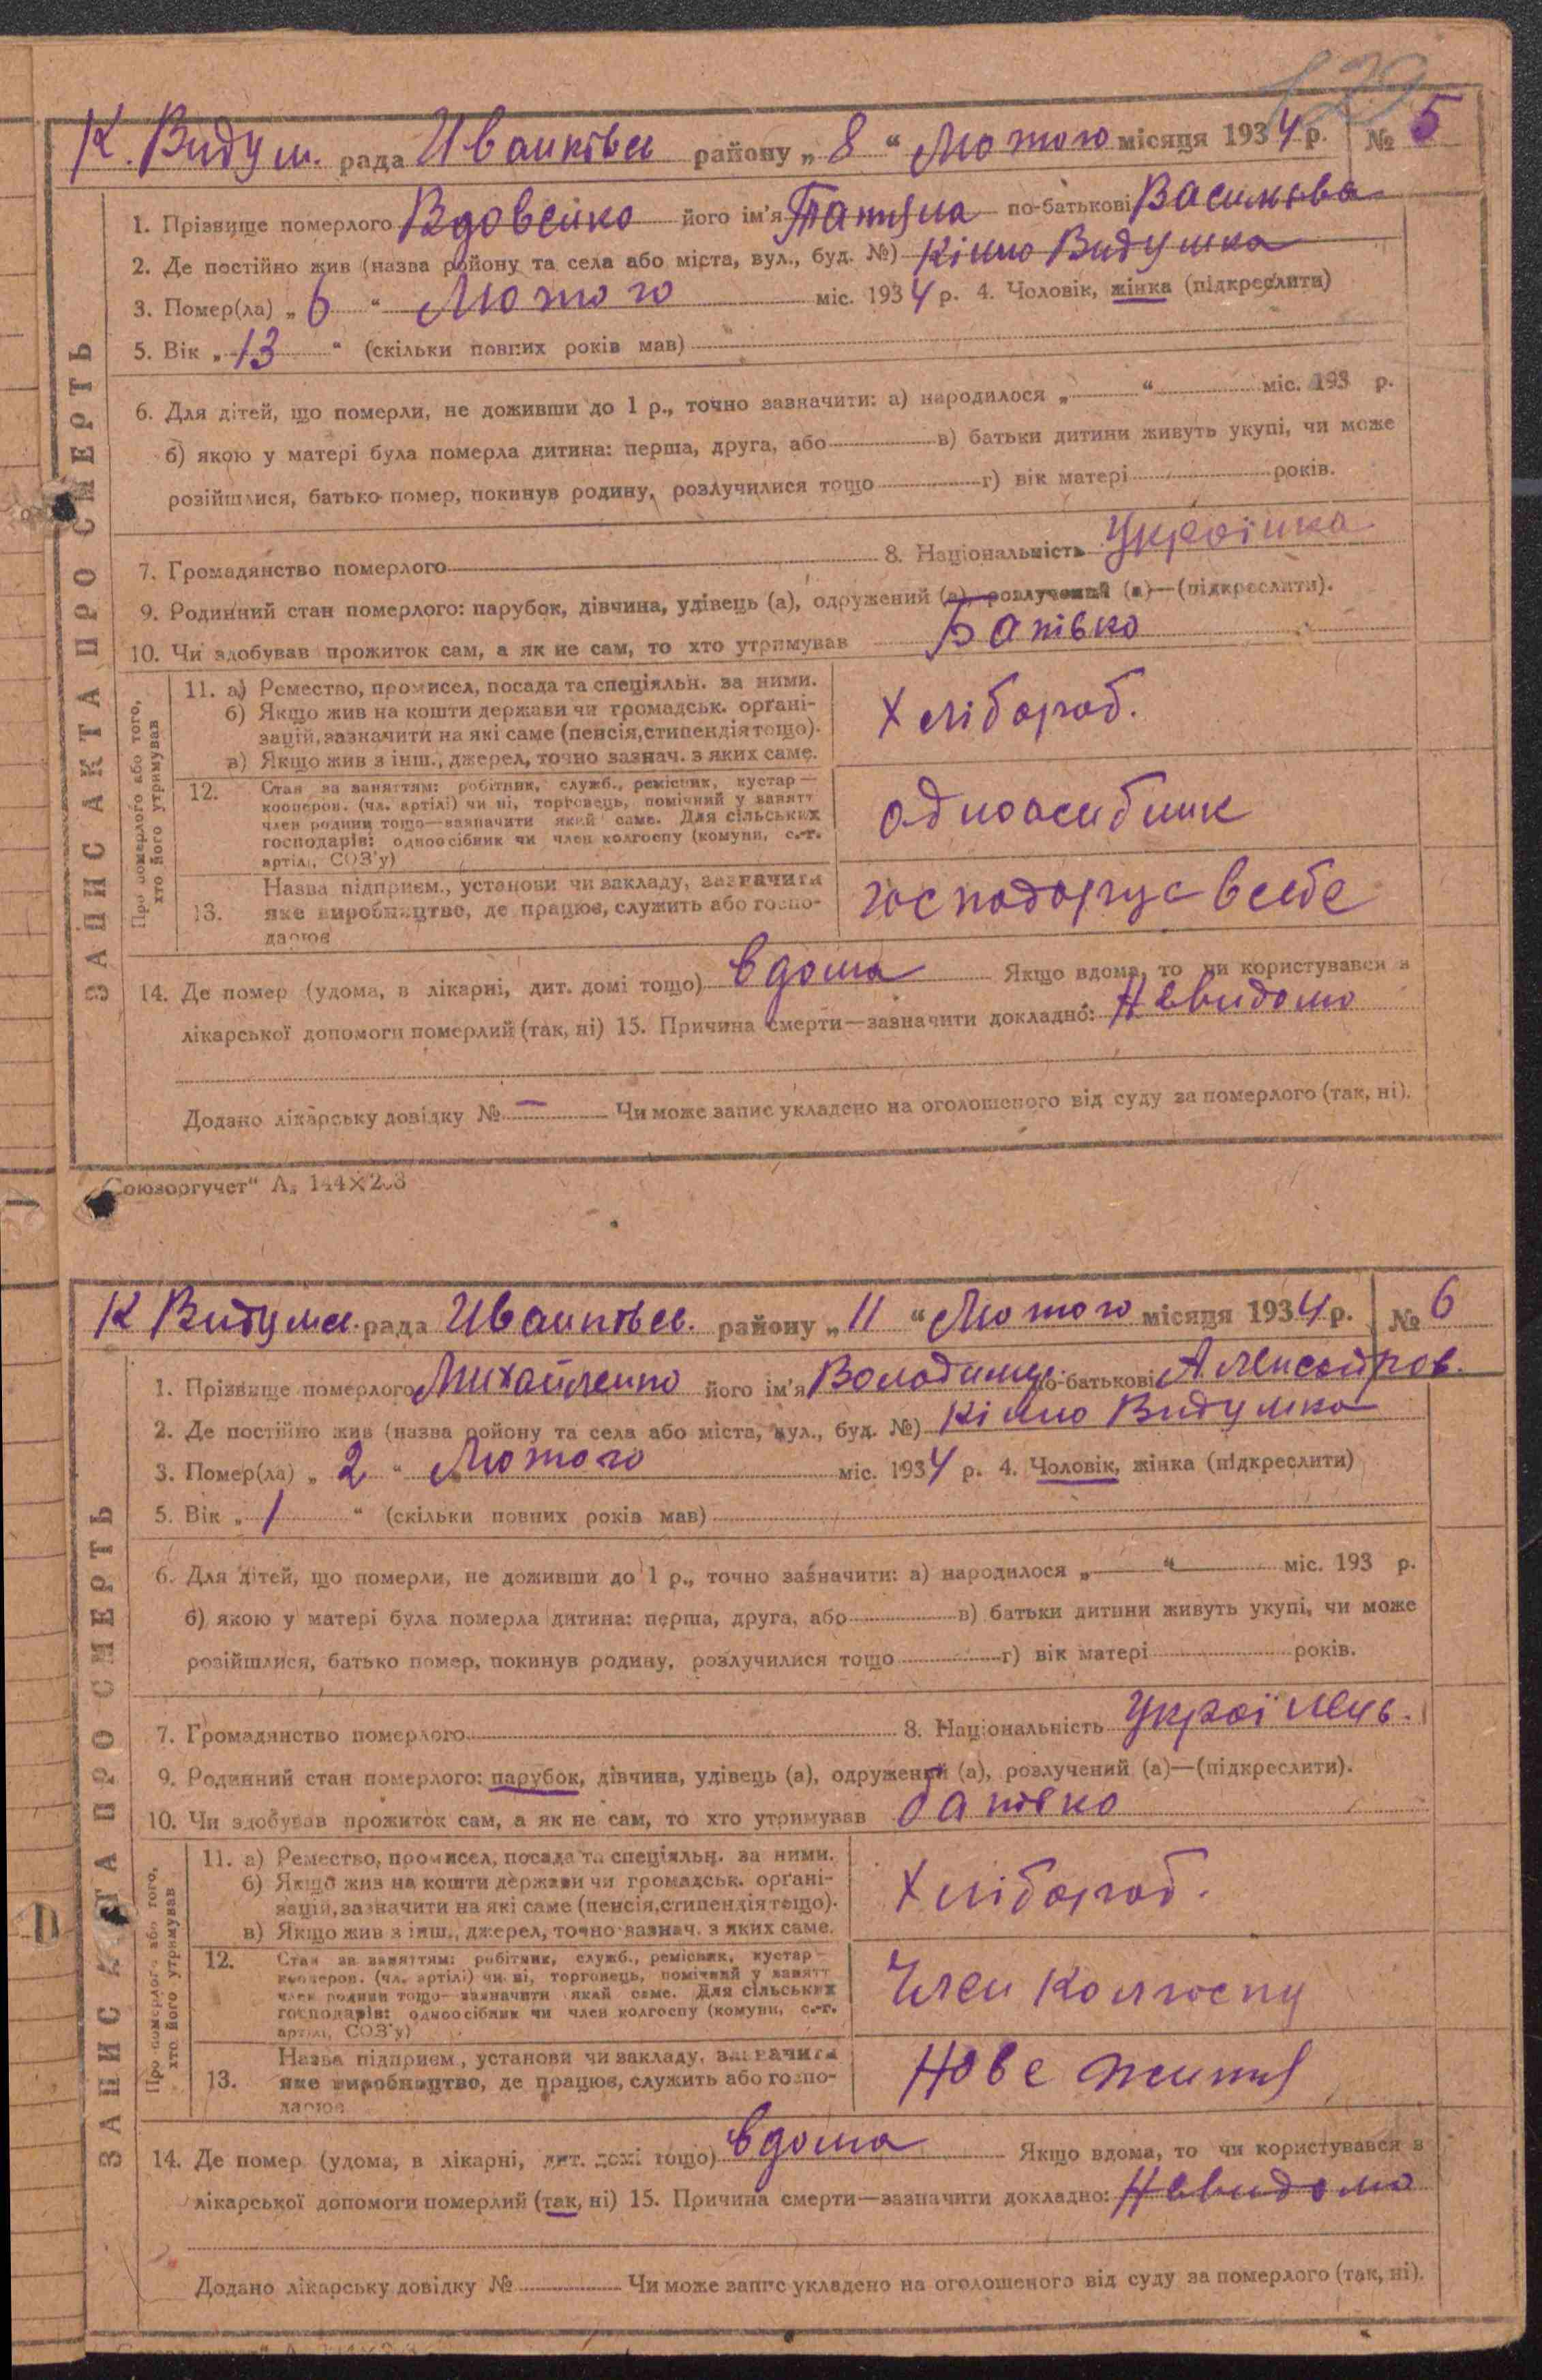 129
К. Видум. рада Иванківсь району „ 8 “ Лютого місяця 1934 р. № 5
ЗАПИС АКТА ПРО СМЕРТЬ
1. Прізвище померлого Вдовенко його ім'я Татяна по-батькові Васильва
2. Де постійно жив (назва району та села або міста, вул., буд. №) Кінно Видумка
3. Помер(ла) „ 6 “ Лютого міс. 1934 р. 4. Чоловік, жінка (підкреслити)
5. Вік „ 13 “ (скільки повних років мав)
6. Для дітей, що померли, не доживши до 1 р., точно зазначити: а) народилося „ “ міс. 193 р.
б) якою у матері була померла дитина: перша, друга, або в) батьки дитини живуть укупі, чи може
розійшлися, батько помер, покинув родину, розлучилися тощо г) вік матері років.
7. Громадянство померлого 8. Національність Українка
9. Родинний стан померлого: парубок, дівчина, удівець (а), одружений (а), розлучений (а)—(підкреслити).
10. Чи здобував прожиток сам, а як не сам, то хто утримував Батівко
Про померлого або того, хто його утримував
11. а) Ремество, промисел, посада та спеціяльн. за ними.
б) Якщо жив на кошти держави чи громадськ. органі-
зацій, зазначити на які саме (пенсія, стипендія тощо).
в) Якщо жив з інш., джерел, точно зазнач. з яких саме.
Хлібороб.
12. Стан за заняттям: робітник, служб., ремісник, кустар—
кооперов. (чл. артілі) чи ні, торговець, помічний у занятт
член родини тощо—зазначити який саме. Для сільських
господарів: одноосібник чи член колгоспу (комуни, с.-г.
артілі, СОЗ'у)
одноосибник
13. Назва підприєм., установи чи закладу, зазначити
яке виробництво, де працює, служить або госпо-
дарює
господорує в себе
14. Де помер (удома, в лікарні, дит. домі тощо) вдома Якщо вдома, то чи користувався з
лікарської допомоги померлий (так, ні) 15. Причина смерти—зазначити докладно: Невидомо
Додано лікарську довідку № — Чи може запис укладено на оголошеного від суду за померлого (так, ні).
„Союзоргучет“ А
К Видумсь. рада Иванківсь. району „ 11 “ Лютого місяця 1934 р. № 6
ЗАПИС АКТА ПРО СМЕРТЬ
1. Прізвище померлого Михайленко його ім'я Володимир по-батькові Александров.
2. Де постійно жив (назва району та села або міста, вул., буд. №) Кінно Видумка
3. Помер(ла) „ 2 “ Лютого міс. 1934 р. 4. Чоловік, жінка (підкреслити)
5. Вік „ 1 “ (скільки повних років мав)
6. Для дітей, що померли, не доживши до 1 р., точно зазначити: а) народилося „ “ міс. 193 р.
б) якою у матері була померла дитина: перша, друга, або в) батьки дитини живуть укупі, чи може
розійшлися, батько помер, покинув родину, розлучилися тощо г) вік матері років.
7. Громадянство померлого 8. Національність Украіïнець.
9. Родинний стан померлого: парубок, дівчина, удівець (а), одружений (а), розлучений (а)—(підкреслити).
10. Чи здобував прожиток сам, а як не сам, то хто утримував батівко
Про померлого або того, хто його утримував
11. а) Ремество, промисел, посада та спеціяльн. за ними.
б) Якщо жив на кошти держави чи громадськ. органі-
зацій, зазначити на які саме (пенсія, стипендія тощо).
в) Якщо жив з інш., джерел, точно зазнач. з яких саме.
Хлібороб.
12. Стан за заняттям: робітник, служб., ремісник, кустар—
кооперов. (чл. артілі) чи ні, торговець, помічний у занятт
член родини тощо—зазначити який саме. Для сільських
господарів: одноосібник чи член колгоспу (комуни, с.-г.
артілі, СОЗ'у)
Член Колгоспу
13. Назва підприєм., установи чи закладу, зазначити
яке виробництво, де працює, служить або госпо-
дарює
Нове життя
14. Де помер (удома, в лікарні, дит. домі тощо) вдома Якщо вдома, то чи користувався з
лікарської допомоги померлий (так, ні) 15. Причина смерти—зазначити докладно: Невидомо
Додано лікарську довідку № Чи може запис укладено на оголошеного від суду за померлого (так, ні).